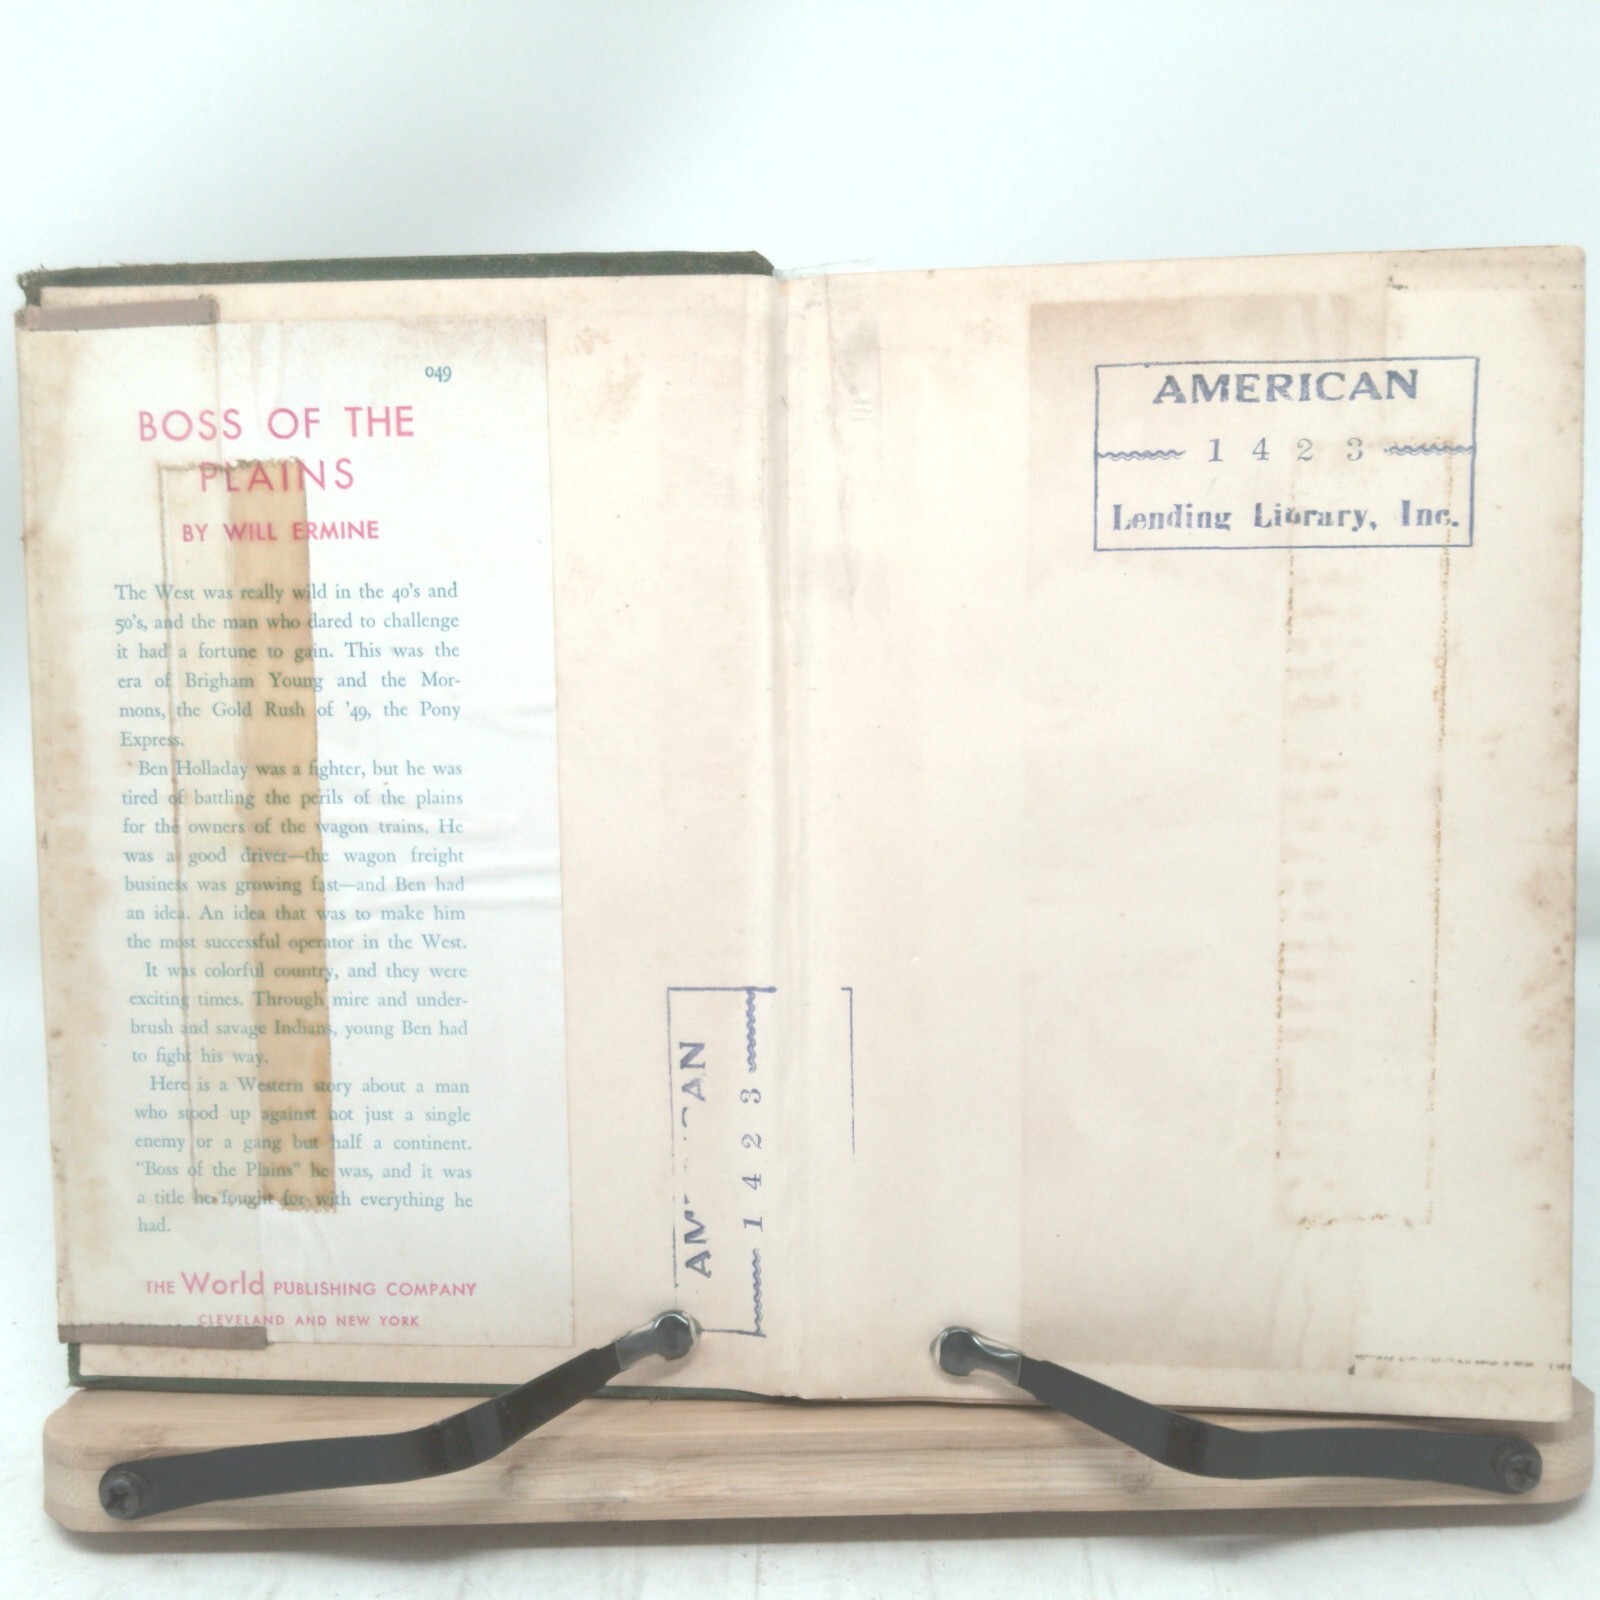 049
BOSS OF THE
PLAINS
BY WILL ERMINE
The West was really wild in the 40's and
50's, and the man who dared to challenge
it had a fortune to gain. This was the
era of Brigham Young and the Mor-
mons, the Gold Rush of '49, the Pony
Express.
Ben Holladay was a fighter, but he was
tired of battling the perils of the plains
for the owners of the wagon trains. He
was a good driver—the wagon freight
business was growing fast—and Ben had
an idea. An idea that was to make him
the most successful operator in the West.
It was colorful country, and they were
exciting times. Through mire and under-
brush and savage Indians, young Ben had
to fight his way.
Here is a Western story about a man
who stood up against not just a single
enemy or a gang but half a continent.
"Boss of the Plains" he was, and it was
a title he fought for with everything he
had.
THE World PUBLISHING COMPANY
CLEVELAND AND NEW YORK
1 4 2 3
AMERICAN
1 4 2 3
Lending Library, Inc.